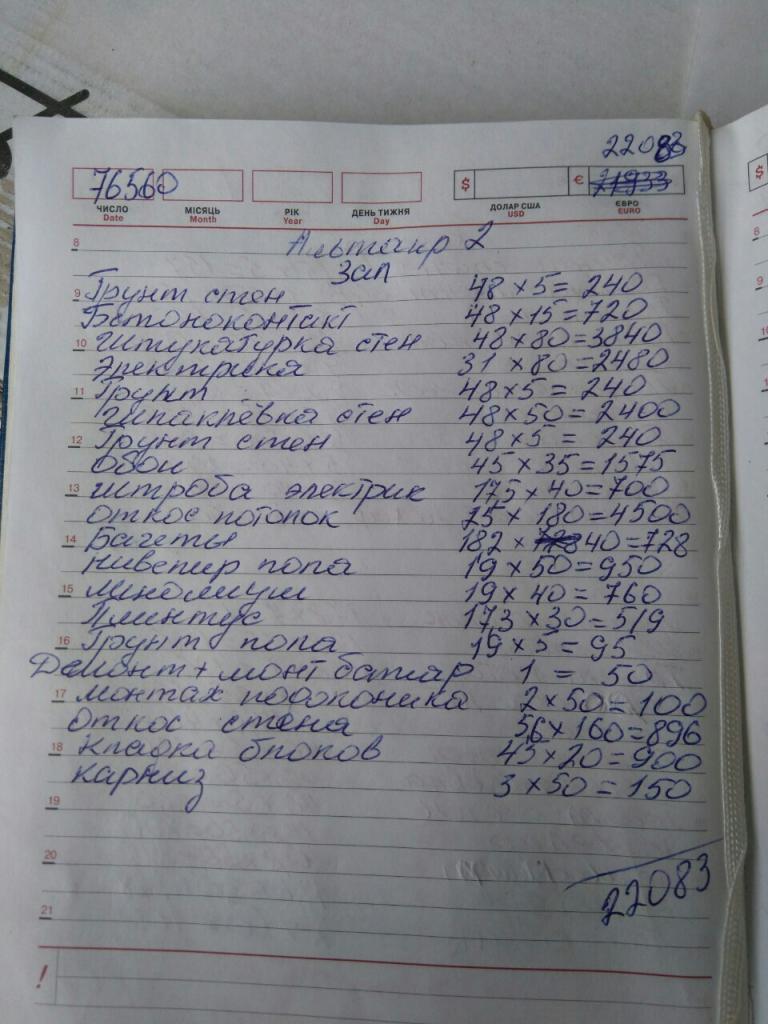 22083
76560
$
€
21933
$
ЧИСЛО
Date
МІСЯЦЬ
Month
РІК
Year
ДЕНЬ ТИЖНЯ
Day
ДОЛАР США
USD
ЄВРО
EURO
8 Альтаир 2
Зал
9 Грунт стен 48 × 5 = 240
Бетоноконтакт 48 × 15 = 720
10 штукатурка стен 48 × 80 = 3840
Электрика 31 × 80 = 2480
11 Грунт 48 × 5 = 240
Шпаклёвка стен 48 × 50 = 2400
12 Грунт стен 48 × 5 = 240
обои 45 × 35 = 1575
13 штроба электрик 17,5 × 40 = 700
откос потолок 25 × 180 = 4500
14 Багеты 18,2 × 40 = 728
нивелир пола 19 × 50 = 950
15 линолиум 19 × 40 = 760
Плинтус 17,3 × 30 = 519
16 Грунт пола 19 × 5 = 95
Демонт + монт батар 1 = 50
17 монтах подоконика 2 × 50 = 100
откос стена 5,6 × 160 = 896
18 кладка блоков 45 × 20 = 900
карниз 3 × 50 = 150
19
20
22083
21
!
8
9
10